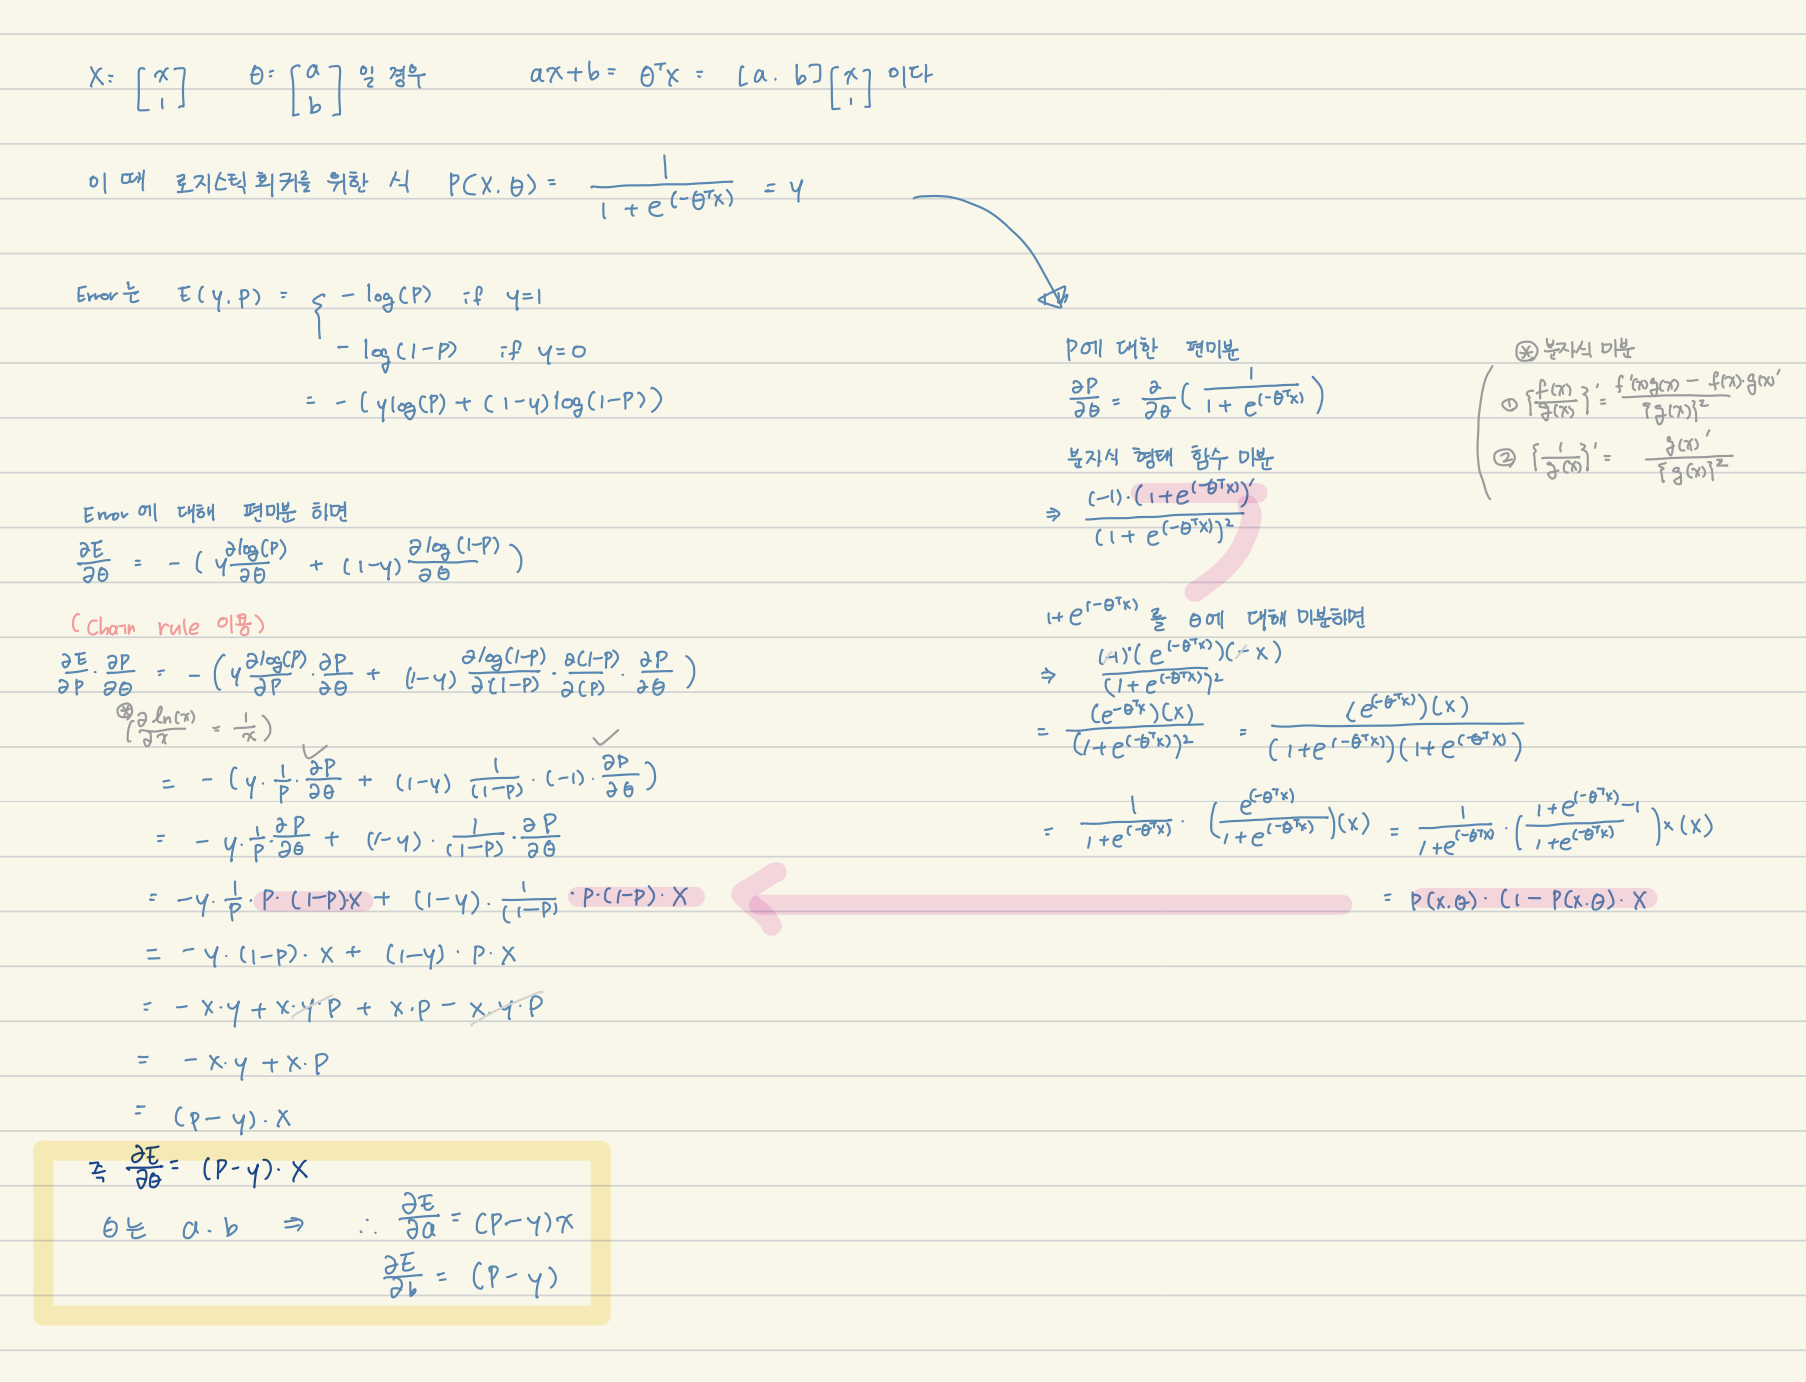 X = [x 1] θ = [a b] 일 경우 ax+b = θᵀX = [a. b][x 1] 이다
이 때 로지스틱 회귀를 위한 식 P(X.θ) = 1 / (1 + e^(-θᵀX)) = y
Error는 E(y.P) = { -log(P) if y=1
- log(1-P) if y=0
= - (ylog(P) + (1-y)log(1-P))
Error에 대해 편미분 하면
∂E/∂θ = - (y ∂log(P)/∂θ + (1-y) ∂log(1-P)/∂θ)
(Chain rule 이용)
∂E/∂P · ∂P/∂θ = - (y ∂log(P)/∂P · ∂P/∂θ + (1-y) ∂log(1-P)/∂(1-P) · ∂(1-P)/∂(P) · ∂P/∂θ)
※ (∂ln(x)/∂x = 1/x)
= - (y · 1/P · ∂P/∂θ + (1-y) 1/(1-P) · (-1) · ∂P/∂θ)
= - y · 1/P · ∂P/∂θ + (1-y) · 1/(1-P) · ∂P/∂θ
= -y · 1/P · P·(1-P)·X + (1-y) · 1/(1-P) · P·(1-P)·X
= -y·(1-P)·X + (1-y)·P·X
= -X·y + X·y·P + X·P - X·y·P
= -X·y + X·P
= (P-y)·X
즉 ∂E/∂θ = (P-y)·X
θ는 a.b ⇒ ∴ ∂E/∂a = (P-y)x
∂E/∂b = (P-y)
P에 대한 편미분
∂P/∂θ = ∂/∂θ (1 / (1 + e^(-θᵀX)))
분자식 형태 함수 미분
⇒ (-1)·(1+e^(-θᵀX))′ / (1 + e^(-θᵀX))²
1+e^(-θᵀX) 를 θ에 대해 미분하면
⇒ (-1)·(e^(-θᵀX))(-X) / (1+e^(-θᵀX))²
= (e^(-θᵀX))(X) / (1+e^(-θᵀX))² = (e^(-θᵀX))(X) / (1+e^(-θᵀX))(1+e^(-θᵀX))
= 1/(1+e^(-θᵀX)) · (e^(-θᵀX) / (1+e^(-θᵀX)))(X) = 1/(1+e^(-θᵀX)) · ((1+e^(-θᵀX)-1) / (1+e^(-θᵀX))) × (X)
= P(X.θ) · (1 - P(X.θ) · X
※ 분자식 미분
① {f(x)/g(x)}′ = f′(x)g(x) - f(x)·g(x)′ / {g(x)}²
② {1/g(x)}′ = g(x)′ / {g(x)}²